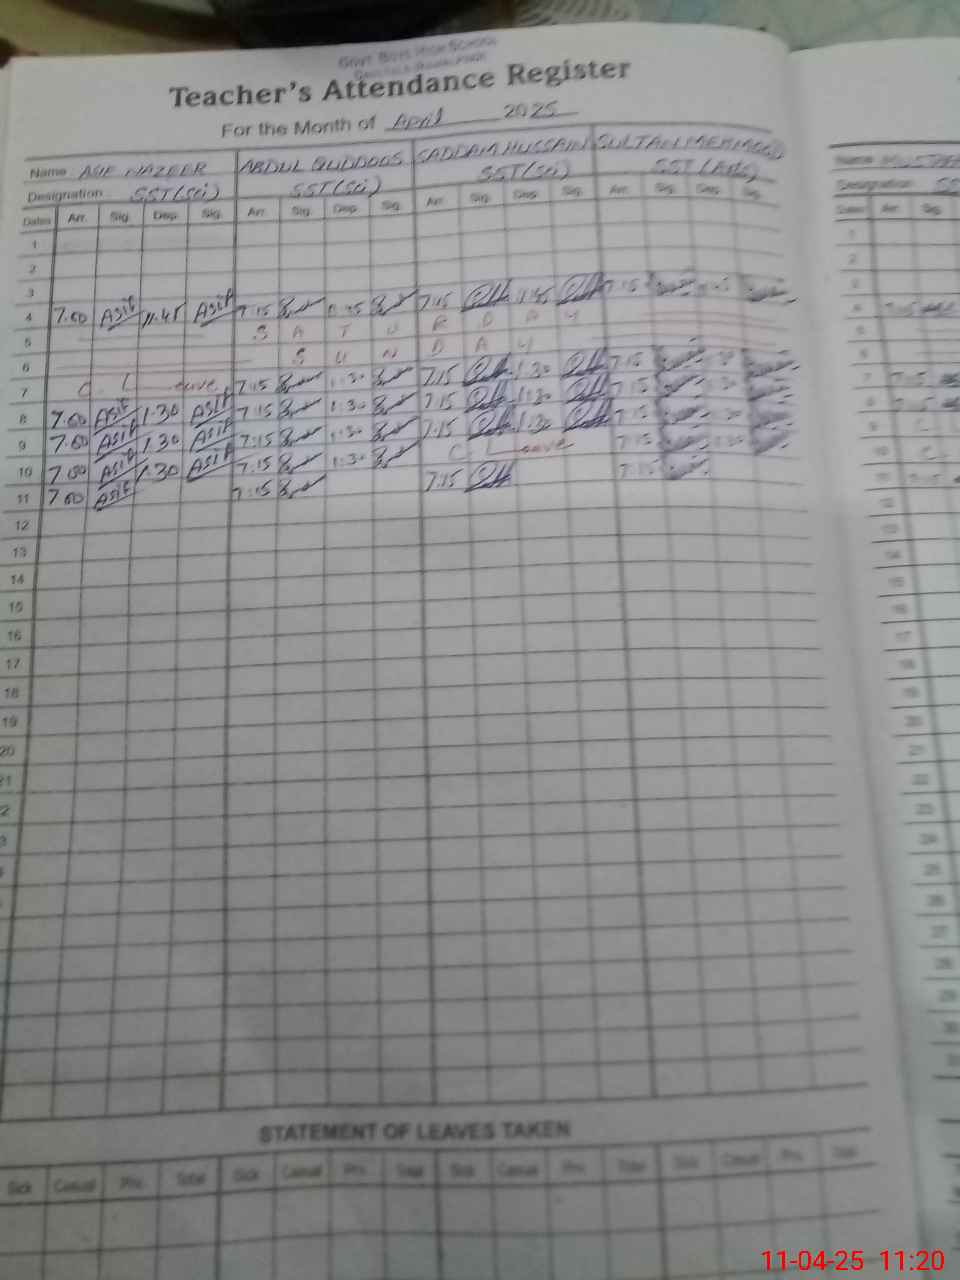 GOVT BOYS HIGH SCHOOL
Teacher's Attendance Register
For the Month of April 2025
Name ASIF NAZEER ABDUL QUDDOOS SADDAM HUSSAIN SULTAN MEHMOOD
Designation SST(Sci) SST(Sci) SST(Sci) SST(Arts)
Dates Arr. Sig. Dep. Sig. Arr. Sig. Dep. Sig. Arr. Sig. Dep. Sig. Arr. Sig. Dep. Sig.
1
2
3
4 7:00 Asif 11:45 Asif 7:15 11:45 7:15 11:45 7:15 11:45
5 S A T U R D A Y
6 S U N D A Y
7 C. L eave 7:15 1:30 7:15 1:30 7:15 1:30
8 7:00 Asif 1:30 Asif 7:15 1:30 7:15 1:30 7:15 1:30
9 7:00 Asif 1:30 Asif 7:15 1:30 7:15 1:30 7:15 1:30
10 7:00 Asif 1:30 Asif 7:15 1:30 C Leave 7:15 1:30
11 7:00 Asif 7:15 7:15 7:15
12
13
14
15
16
17
18
19
20
STATEMENT OF LEAVES TAKEN
Sick Casual Priv. Total Sick Casual Priv. Total Sick Casual Priv. Total Sick Casual Priv. Total
Name
Designation SS
Dates Arr. Sig.
1
2
3
4 7:15
5
6
7 7:15
8 7:15
9 C
10 C.
11 7:15
12
13
14
15
16
17
18
19
20
21
22
23
24
25
26
27
28
29
30
11-04-25 11:20